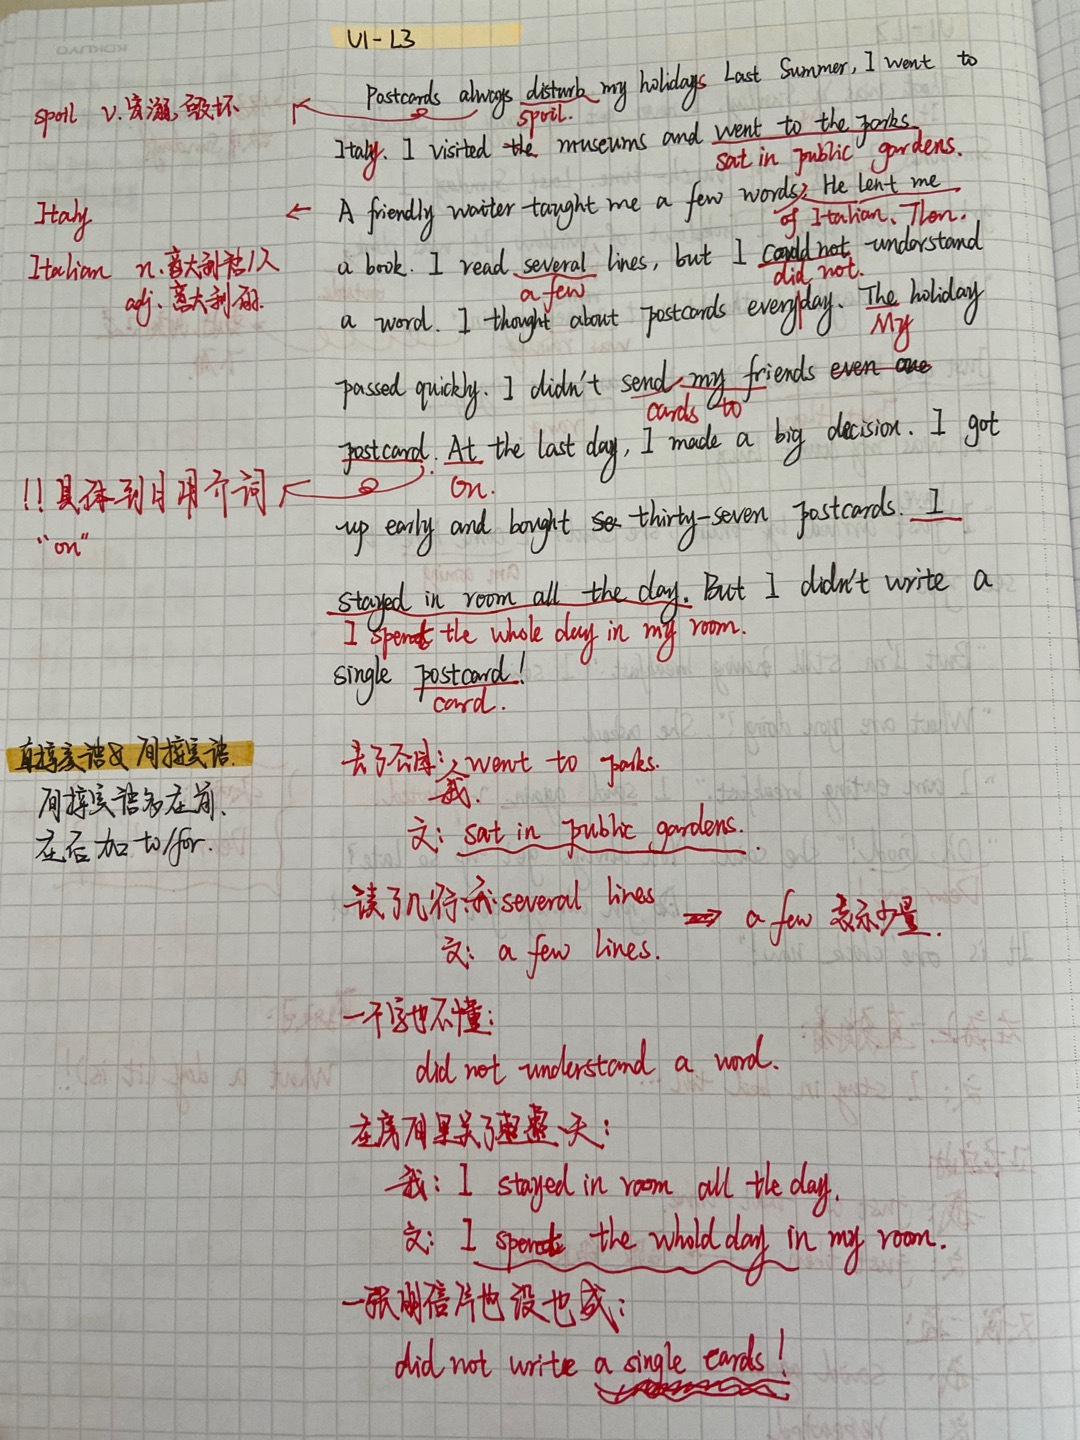 U1-L3
Postcards always disturb my holidays Last Summer, I went to
spoil v. 宠溺, 毁坏
spoil.
Italy. I visited the museums and went to the parks.
sat in public gardens.
Italy
A friendly waiter taught me a few words; He lent me
of Italian. Then.
Italian n. 意大利语/人
a book. I read several lines, but I could not understand
a few
did not.
adj. 意大利的.
a word. I thought about postcards everyday. The holiday
My
passed quickly. I didn't send my friends even one
cards to
postcard. At the last day, I made a big decision. I got
On.
!! 具体到日用介词
"on"
up early and bought thirty-seven postcards. I
stayed in room all the day. But I didn't write a
I spent the whole day in my room.
single postcard!
card.
直接宾语& 间接宾语.
间接宾语多在前,
在后加 to/for.
去了公园: went to parks.
我.
文: sat in public gardens.
读了几行: 我: several lines
⇒ a few 表示少量.
文: a few lines.
一个字也不懂:
did not understand a word.
在房间里关了整整一天:
我: I stayed in room all the day.
文: I spent the whold day in my room.
一张明信片也没也成:
did not write a single cards!